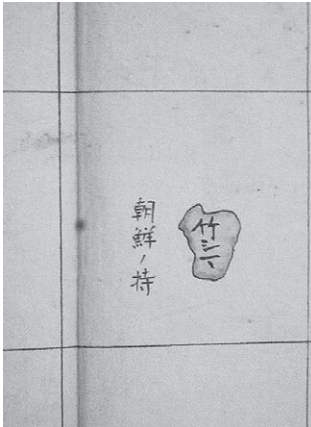 竹シマ
朝鮮ノ持